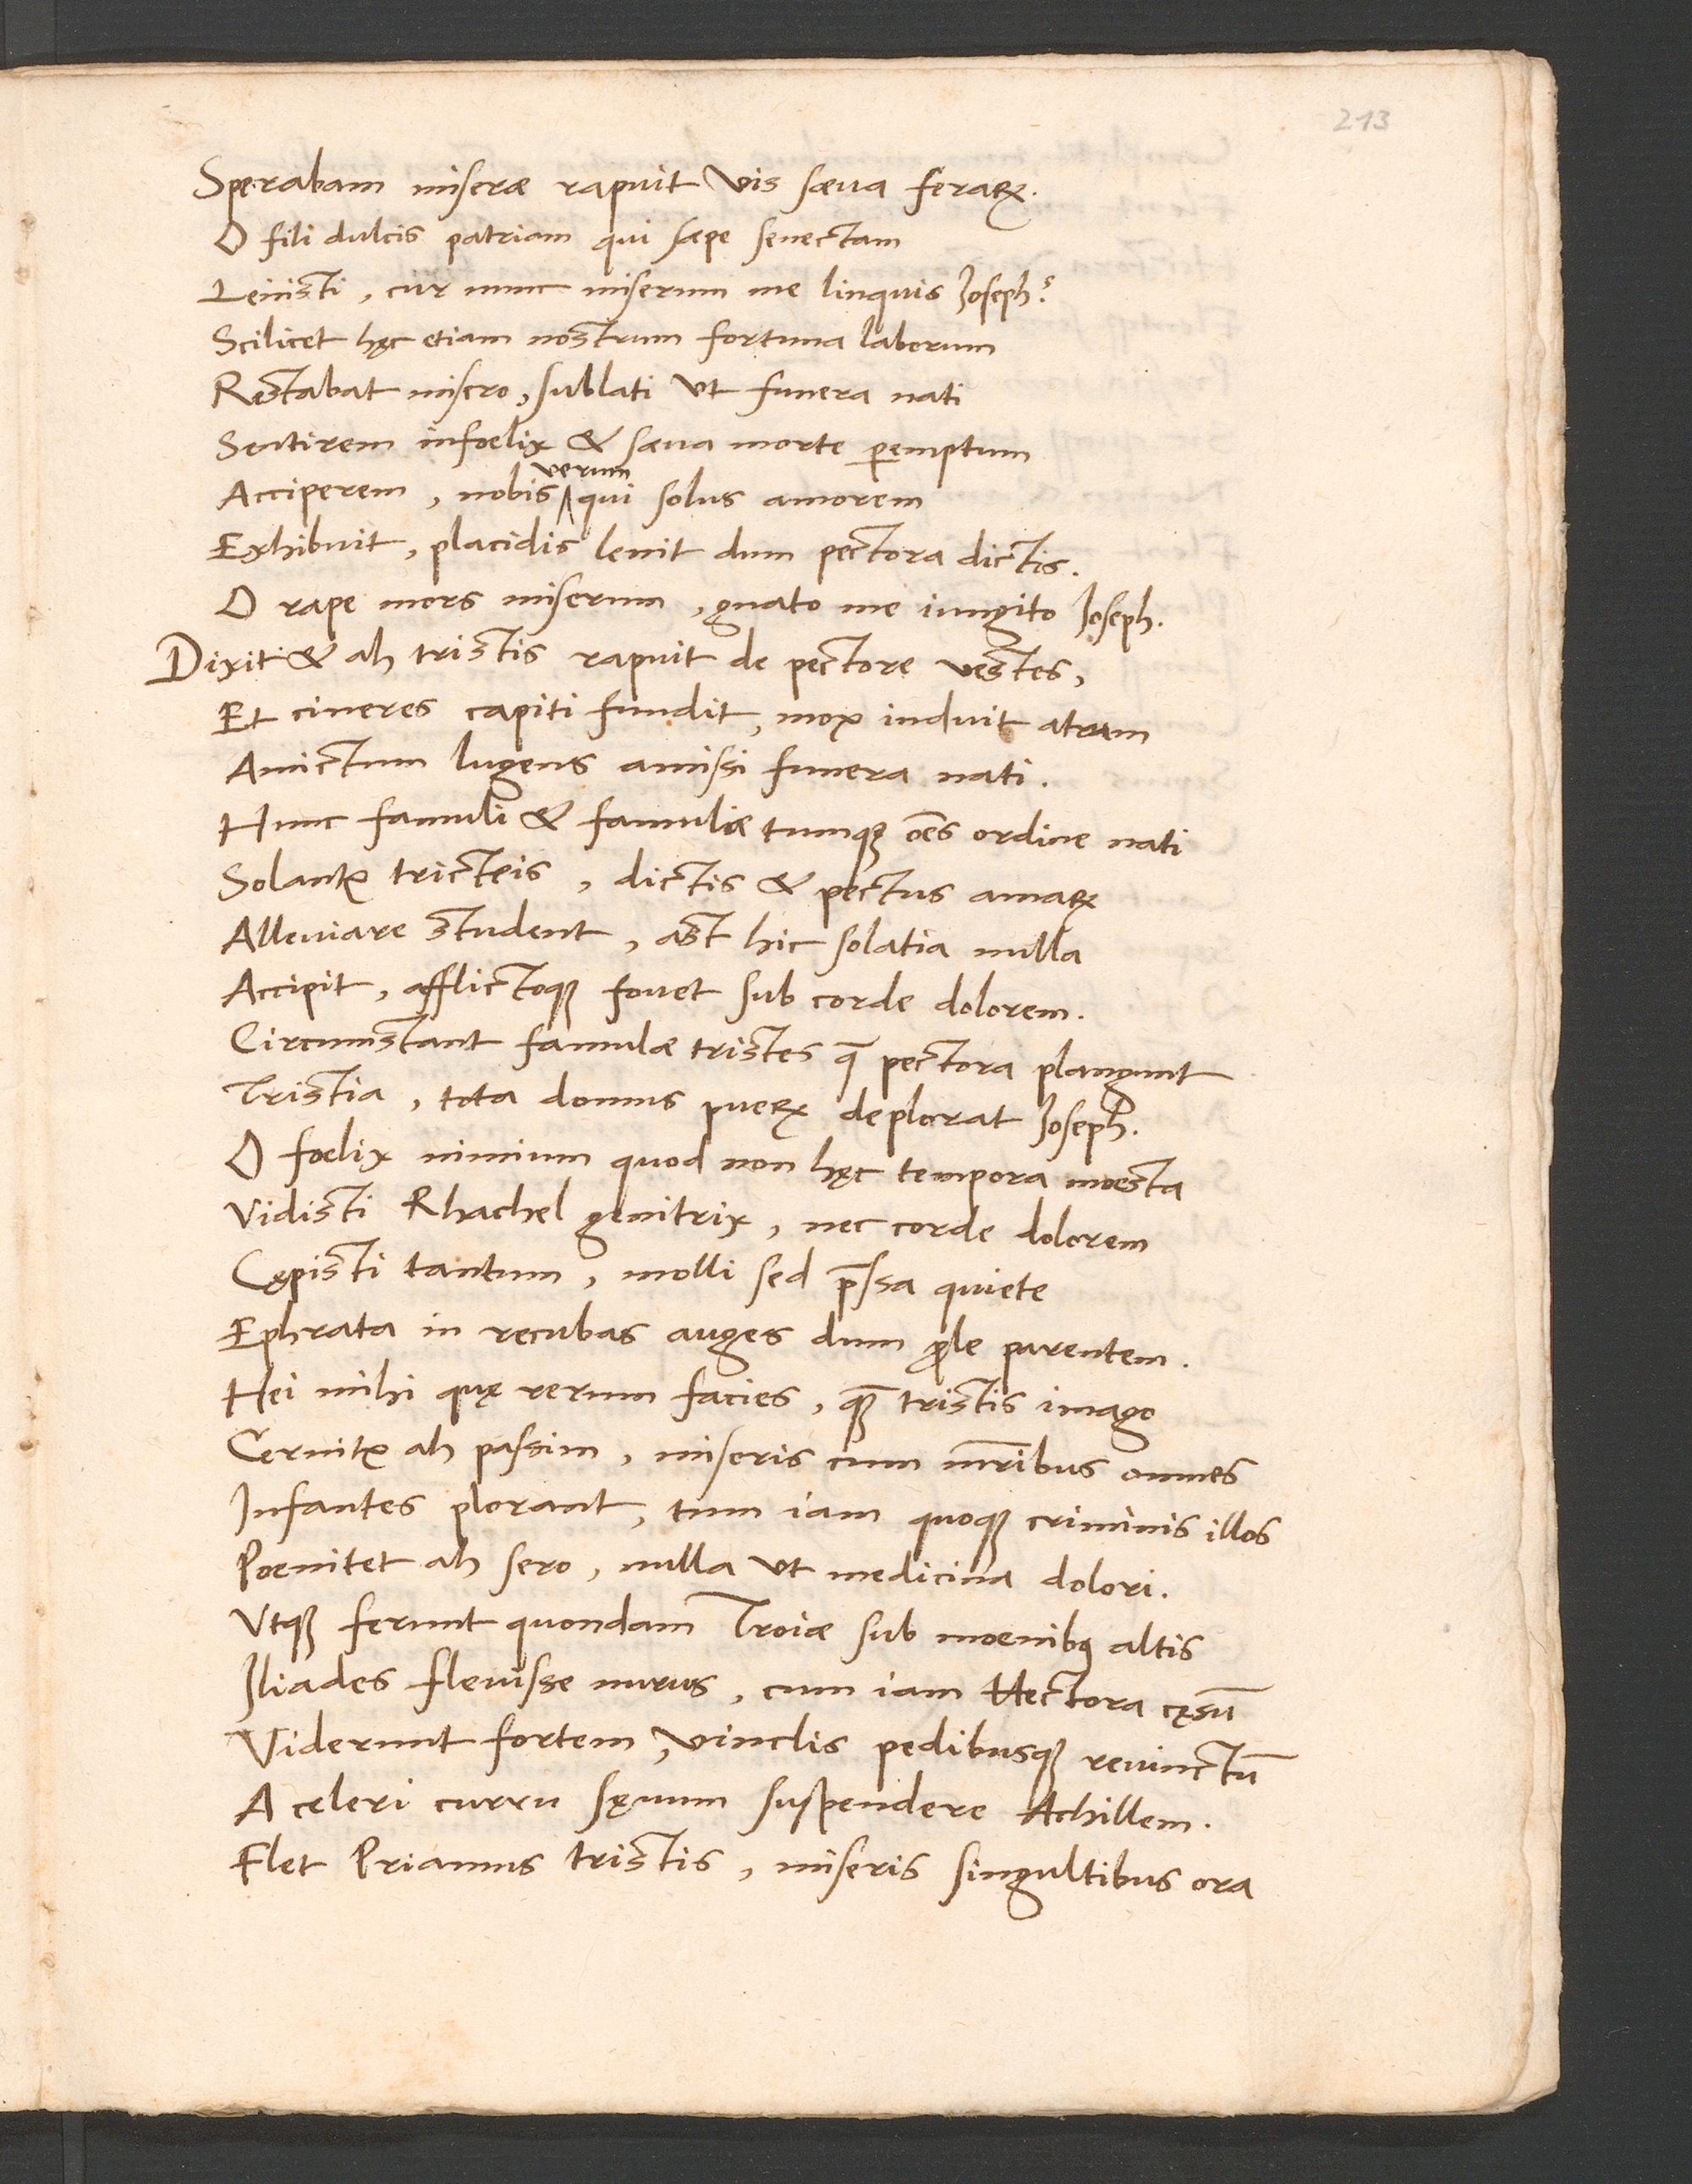 213
Sperabam miseræ rapuit vis sæua feraꝝ.
O fili dulcis patriam qui sæpe senectam
Leuisti, cur nunc miserum me linquis Joseph?
Scilicet hęc etiam nostrum fortuna laborum
Restabat misero, sublati ut funera nati
Sentirem infoelix & sæua morte ꝑemptum
Acciperem, nobis verum qui solus amorem
Exhibuit, placidis leuit dum pectora dictis.
O rape mors miserum, gnato me iungito Joseph.
Dixit & ah tristis rapuit de pectore vestes,
Et cineres capiti fundit, mox induit atrum
Amictum lugens amissi funera nati.
Hunc famuli & famulæ tumqꝫ oēs ordine nati
Solantꝛ tricteis, dictis & pectus amaꝝ
Alleuiare student, ast hic solatia nulla
Accipit, afflictoqꝫ fouet sub corde dolorem.
Circumstant famulæ tristes q̄ pectora plangunt
Tristia, tota domus pueꝝ deplorat Joseph.
O foelix nimium quod non hęc tempora moesta
Vidisti Rhachel genitrix, nec corde dolorem
Cępisti tantum, molli sed p̄ssa quiete
Ephrata in recubas auges dum ꝓle parentem.
Hei mihi quę rerum facies, qꝫ̄ tristis imago
Cernitꝛ ah passim, miseris cum m̄ribus omnes
Infantes plorant, tum iam quoqꝫ criminis illos
Poenitet ah sero, nulla ut medicina dolori.
Vtqꝫ ferunt quondam Troiæ sub moenibꝰ altis
Iliades fleuisse nurus, cum iam Hectora cęsū
Viderunt fortem, vinclis pedibusqꝫ reuinctū
A celeri curru sęuum suspendere Achillem.
Flet Priamus tristis, miseris singultibus ora